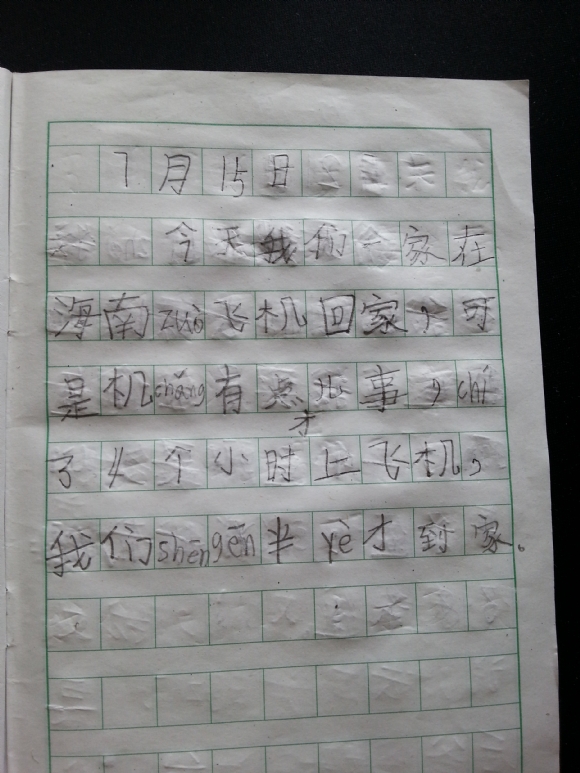 7月15日
今天我们全家在
海南zuò飞机回家，可
是机chǎng有点儿事，chí
了4个小时才上飞机，
我们shēngēn半yè才到家。